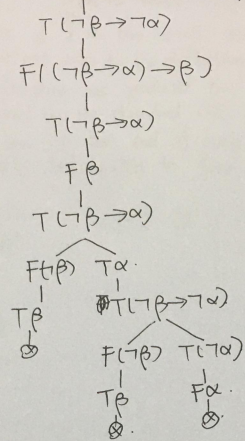 T(¬β→¬α)
F((¬β→α)→β)
T(¬β→α)
Fβ
T(¬β→α)
F(¬β) Tα.
T(¬β→¬α)
Tβ
⊗
F(¬β) T(¬α)
Tβ Fα.
⊗. ⊗.